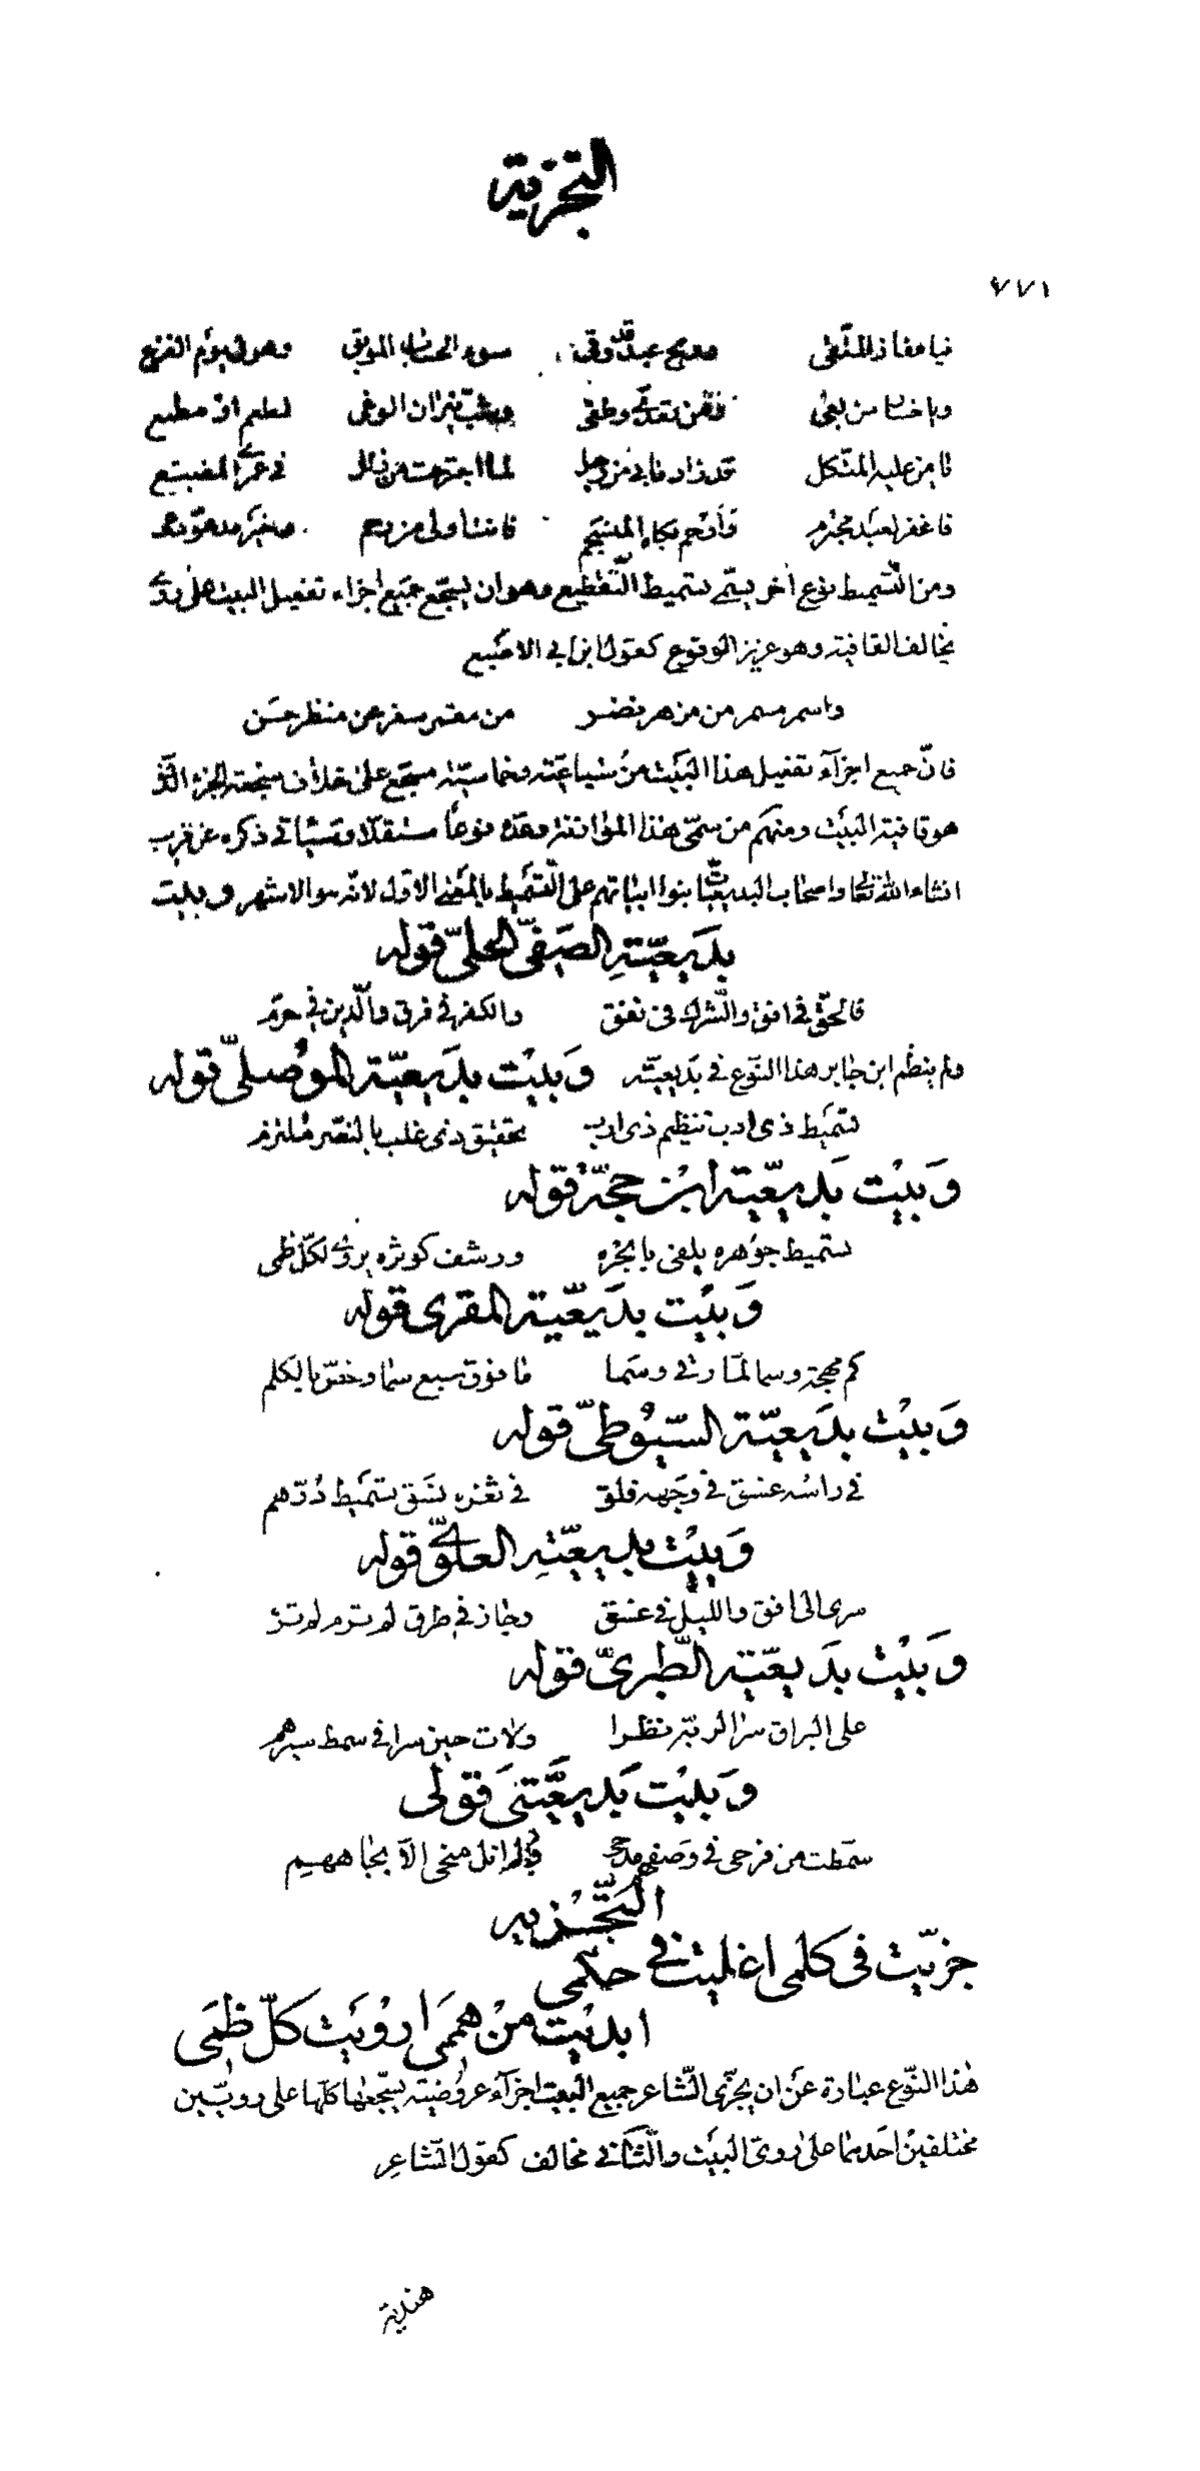 التجزية
٧٧١
فيا مفاز المتقى ربح عبد قد وقى سوء الحساب الموبق وهول يوم الفزع
ويا خسار من بغى ومن تعدى وطغى وشب نيران الوغى لمطعم او مطمع
يا من عليه المتكل قد زاد ما بى من وجل لما اجترحت من زلل فى عمرى المضيع
فاغفر لعبد مجترم وارحم بكاه المنسجم فانت اولى من رحم وخير مدعو دعى
ومن التسميط نوع اخر يسمى تسميط التقطيع وهو ان يسجع جميع اجزاء تفعيل البيت على روى
يخالف القافية وهو عزيز الوقوع كقول ابن ابى الاصبع
واسمر مثمر من مزهر نضر من مقمر مسفر عن منظر حسن
فان جميع اجزاء تفعيل هذا البيت من سباعيته وخماسيته مسجع على خلاف سجعة الجزء الذى
هو قافية البيت ومنهم من سمى هذا الموازنة وعده نوعا مستقلا وسياتى ذكره عن قريب
انشاء الله تعالى واصحاب البديعيات بنوا ابياتهم على التسميط بالمعنى الاول لانه هو الاشهر وبيت
بديعية الصفى الحلى قوله
فالحق فى افق والشرك فى نفق والكفر فى فرق والدين فى حرم
ولم ينظم ابن جابر هذا النوع فى بديعيته وبيت بديعية الموصلى قوله
تسميط ذى ادب تنظيم ذى ارب بحقيق ذى غلب بالنصر ملتزم
وبيت بديعية ابن حجة قوله
تسميط جوهره يلفى بابحره ورشف كوثره يروى لكل ظمى
وبيت بديعية المقرى قوله
كم مهجة وسما لما رقى وسما ما فوق سبع سما وخص بالكلم
وبيت بديعية السيوطى قوله
فى راسه غسق فى وجهه فلق فى ثغره نسق تسميط درهم
وبيت بديعية العلوى قوله
سرى الى افق والليل فى غسق وجاز فى طرق لم ترم لم ترم
وبيت بديعية الطبرى قوله
على البراق سرا لربه نظرا ولات حين سرا فى سمط سيرهم
وبيت بديعيتى قولى
سمطت من فرحى فى وصفهم مدحى ولم انل منحى الا بجاههم
التجزية
جزيت فى كلمى اغليت فى حكمى
ابديت من هممى ارويت كل ظمى
هذا النوع عبارة عن ان يجزى الشاعر جميع البيت اجزاء عروضية يسجعها كلها على رويين
مختلفين احدهما على روى البيت والثانى مخالف كقول الشاعر
هندية